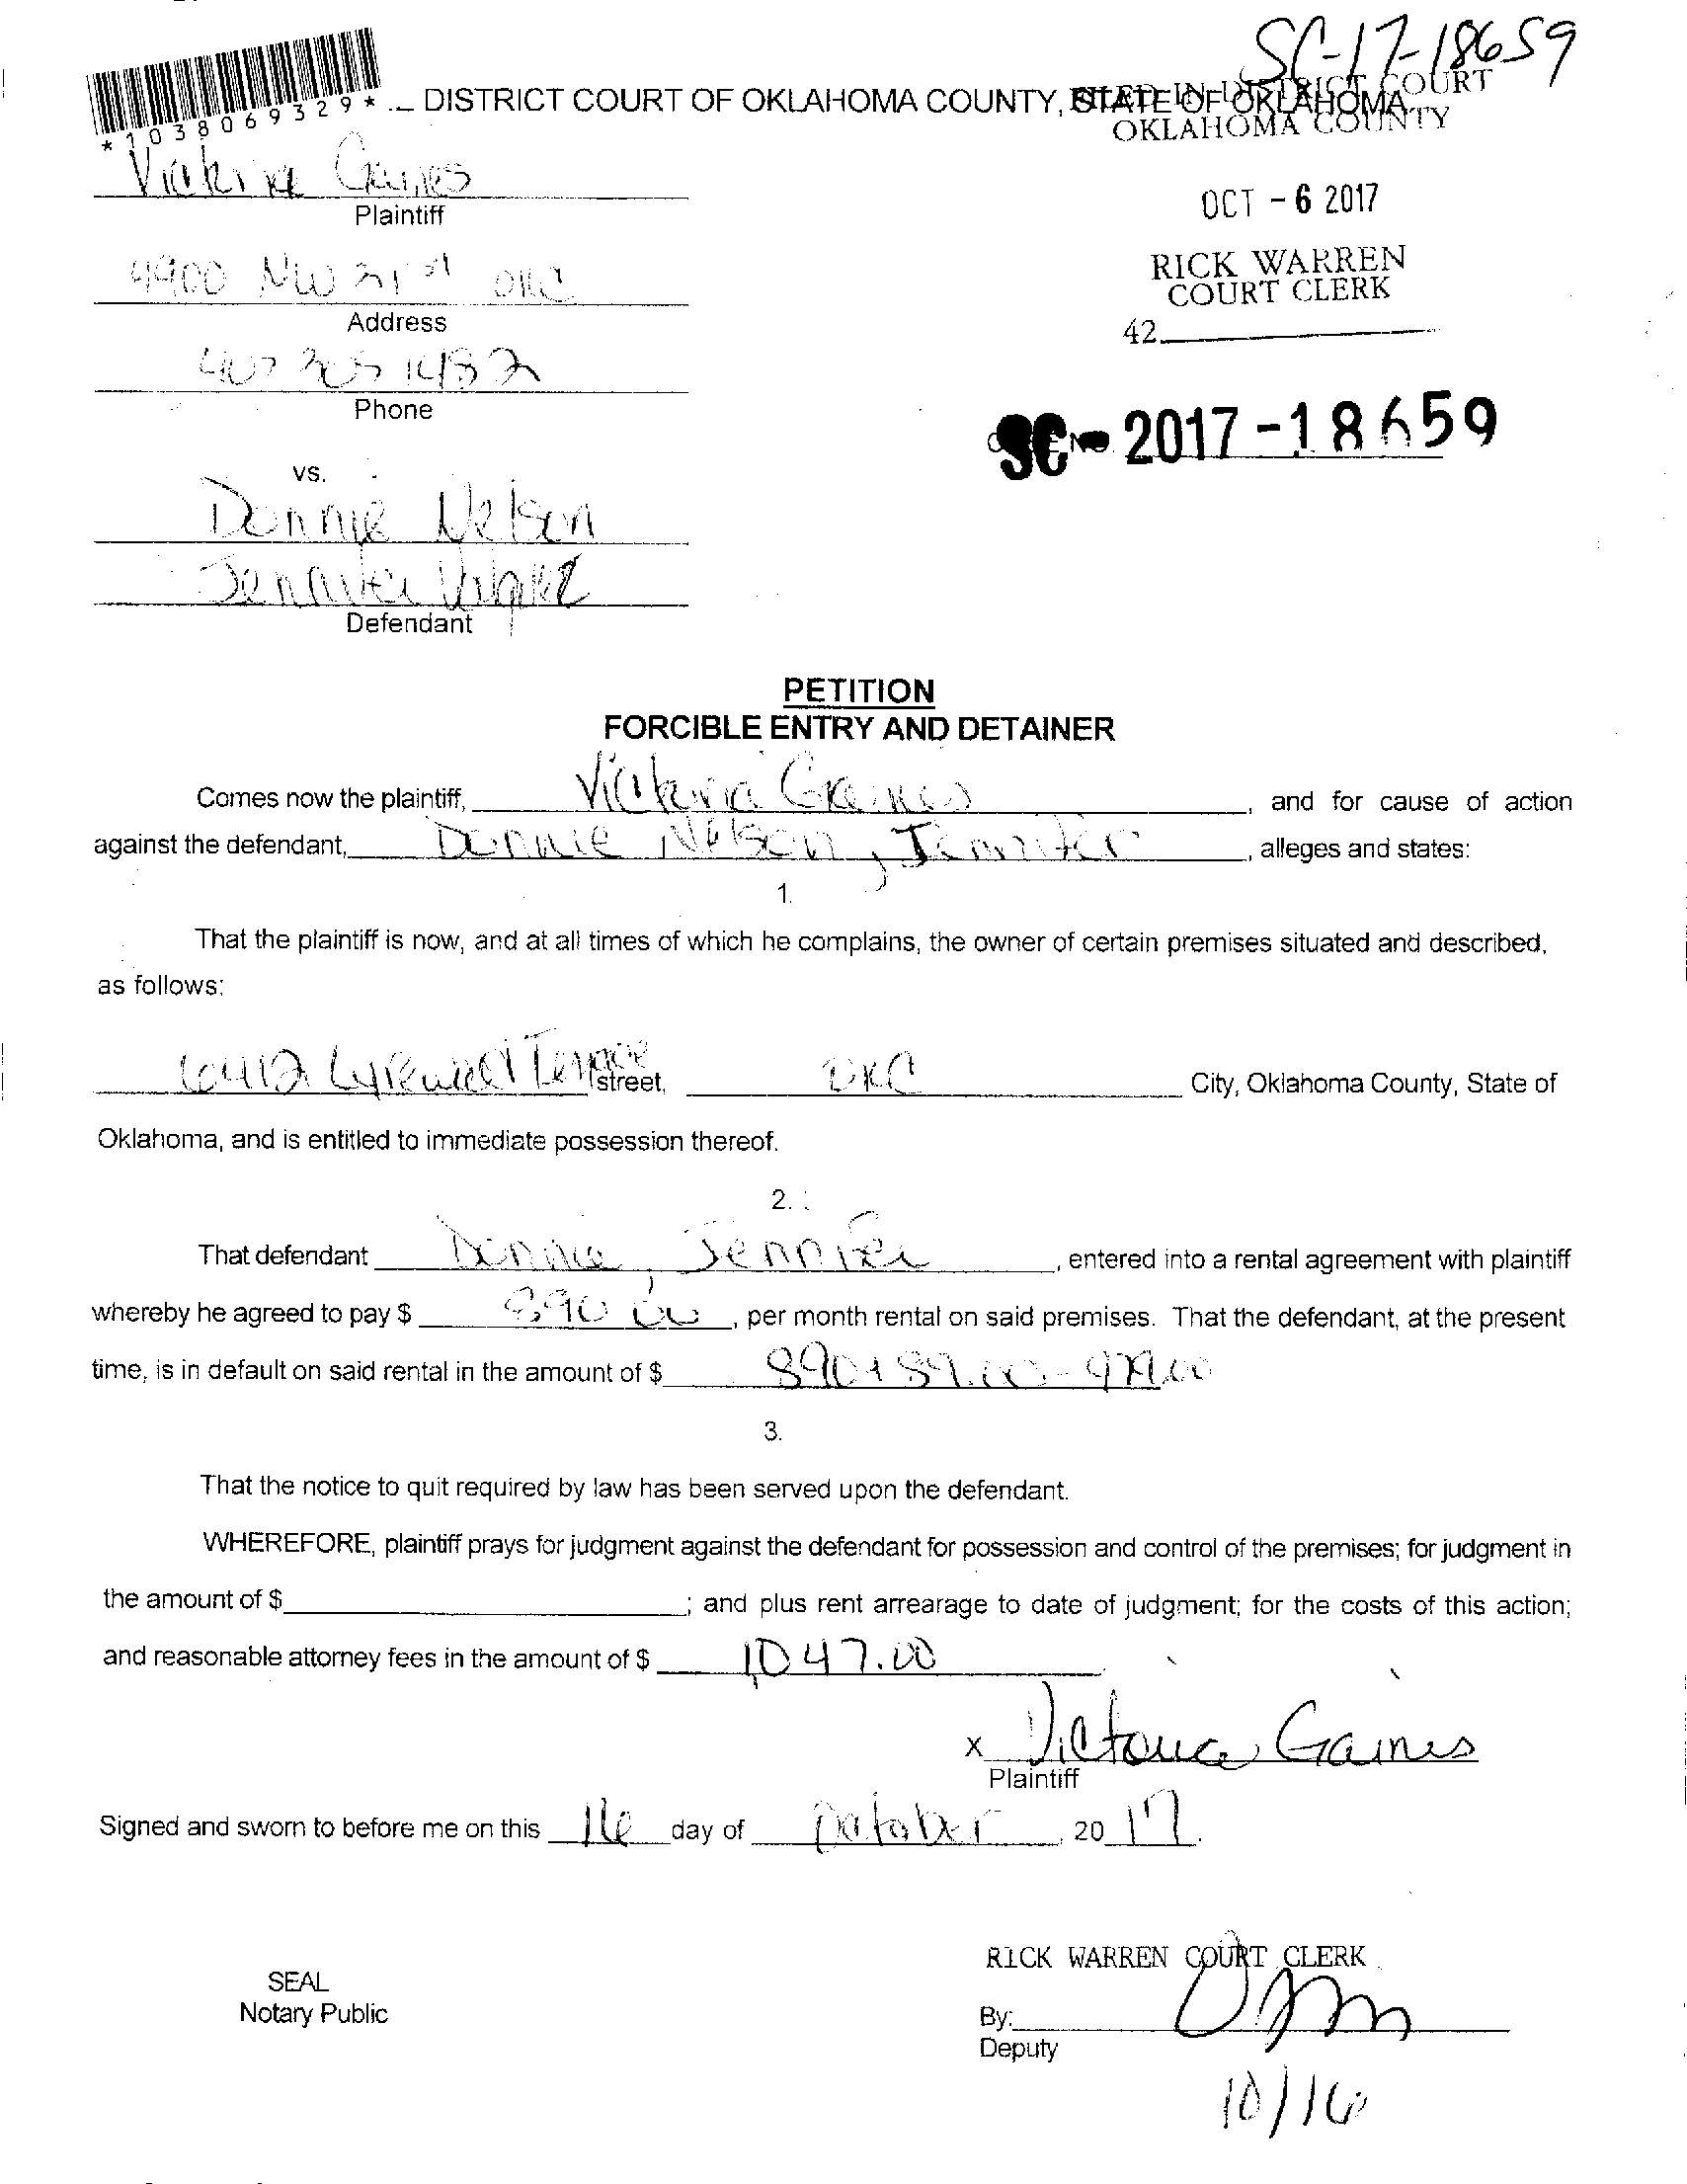 SC-17-18659
*1038069329*
DISTRICT COURT OF OKLAHOMA COUNTY, STATE OF OKLAHOMA
FILED IN DISTRICT COURT
OKLAHOMA COUNTY
Gaines
Plaintiff
OCT - 6 2017
4900 NW 31st OKC
Address
RICK WARREN
COURT CLERK
42
Phone
SC - 2017 - 18659
vs.
Donnie Nelson
Jennifer
Defendant
PETITION
FORCIBLE ENTRY AND DETAINER
Comes now the plaintiff, Victoria Gaines, and for cause of action
against the defendant, Donnie Nelson, Jennifer, alleges and states:
1.
That the plaintiff is now, and at all times of which he complains, the owner of certain premises situated and described,
as follows:
6412 Lyrewood Terrace street, OKC City, Oklahoma County, State of
Oklahoma, and is entitled to immediate possession thereof.
2.
That defendant Donnie, Jennifer, entered into a rental agreement with plaintiff
whereby he agreed to pay $ 890 00, per month rental on said premises. That the defendant, at the present
time, is in default on said rental in the amount of $ 890+89.00-979.00
3.
That the notice to quit required by law has been served upon the defendant.
WHEREFORE, plaintiff prays for judgment against the defendant for possession and control of the premises; for judgment in
the amount of $ ; and plus rent arrearage to date of judgment; for the costs of this action;
and reasonable attorney fees in the amount of $ 1,047.00
x Victoria Gaines
Plaintiff
Signed and sworn to before me on this 16 day of October, 20 17.
RICK WARREN COURT CLERK
SEAL
Notary Public
By:
Deputy
10/16